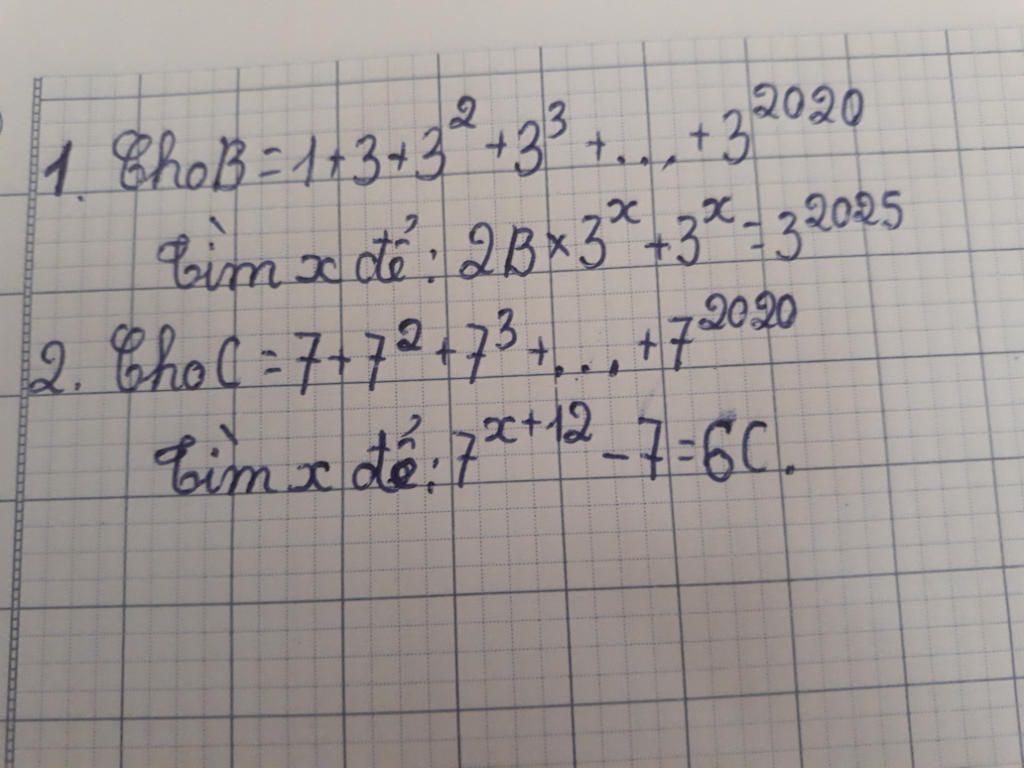 1. Cho B = 1 + 3 + 3² + 3³ + ... + 3²⁰²⁰
Tìm x để: 2B × 3ˣ + 3ˣ = 3²⁰²⁵
2. Cho C = 7 + 7² + 7³ + ... + 7²⁰²⁰
Tìm x để: 7ˣ⁺¹² - 7 = 6C.